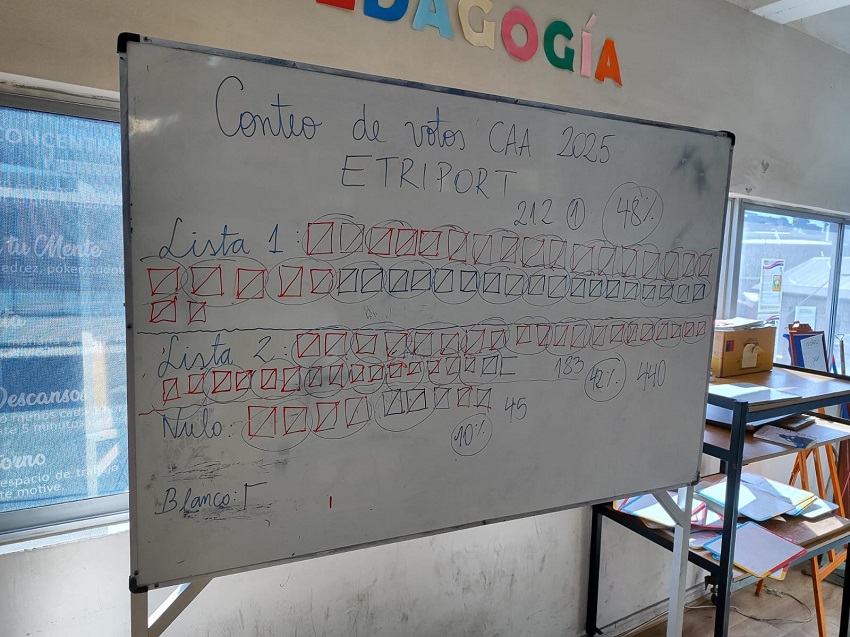 EDAGOGÍA
Conteo de votos CAA 2025
ETRIPORT
212 1 48%
Lista 1:
Lista 2:
183 42% 440
Nulo: 45
10%
Blanco:
CONCENTR
tu Mente
edrez, póker, sudok
Descansos
menos cada
5 minutos
torno
espacio de trabajo
te motive.